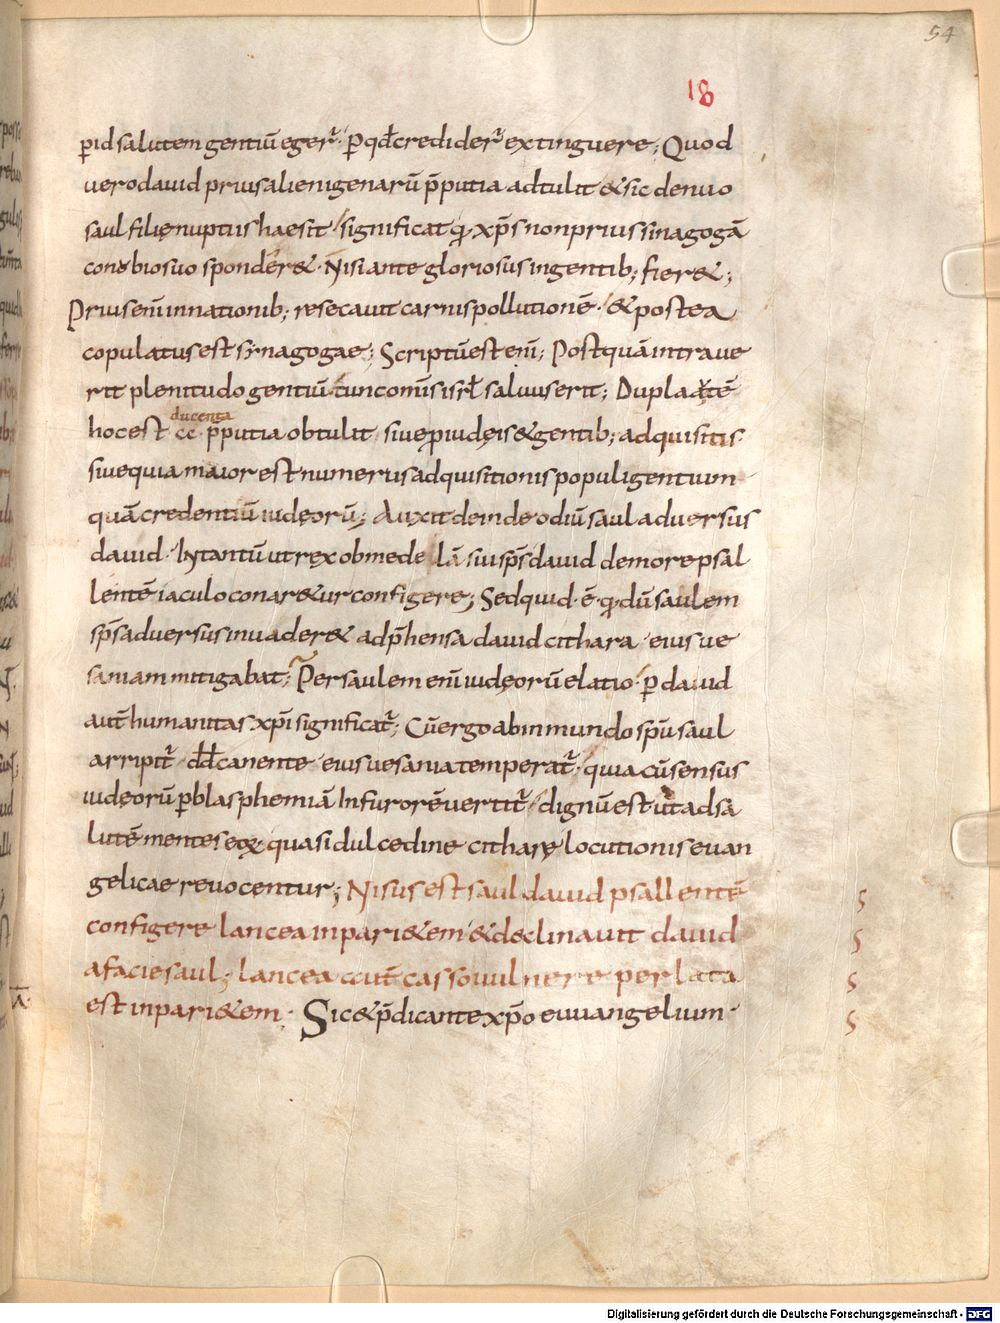 54
18
ꝑid salutem gentiū egerꝉ. Ꝑ qđ crediderꝉ extinguere; Quod
vero dauid prius alienigenarū p̄putia adtulit & sic denuo
saul filię nuptiis haesit significat q̇ xp̄s non prius sinagogā
conubio suo sponder&. Nisi ante gloriosus in gentib; fier&;
Prius eni̅ in nationib; resecauit carnis pollutionē. & postea
copulatus est synagogae; Scriptū est eni̅; Postquā intraue
rit plenitudo gentiū tunc om̄is isrł saluus erit; Dupla aut̄ē
ducenta
hoc est cc p̄putia obtulit siue ꝓ iudęis & gentib; adquisitis
siue quia maior est numerus adquisitionis populi gentium
quā credentiū iudęorū; Auxit deinde odiū saul aduersus
dauid. Intantū ut rex obmedelā sui sp̄s dauid de more psal
lentē iaculo conar&ur configere; Sed quid ē q̇ dū saulem
sp̄s aduersus inuader& adp̄hensa dauid cithara eius ue
saniam mitigabat; Per saulem eni̅ iudęorū elatio ꝑ dauid
aut̄ humanitas xp̄i significatꝉ; Cū ergo ab inmundo sp̄u saul
arripitꝉ dđ canente eius uesania temperatꝉ quia cū sensus
iudęorū ꝑ blasphemiā In furorē vertitꝉ dignū est ut ad sa
lutē mentes eoꝝ quasi dulcedine citharę locutionis euan
gelicae reuocentur; Nisus est saul dauid psallentē
configere lancea in pari&em & declinauit dauid
a facie saul; lancea aut̄ casso uulnere perlata
est in pari&em. Sic & p̄dicante xp̄o euuangelium
Digitalisierung gefördert durch die Deutsche Forschungsgemeinschaft - DFG